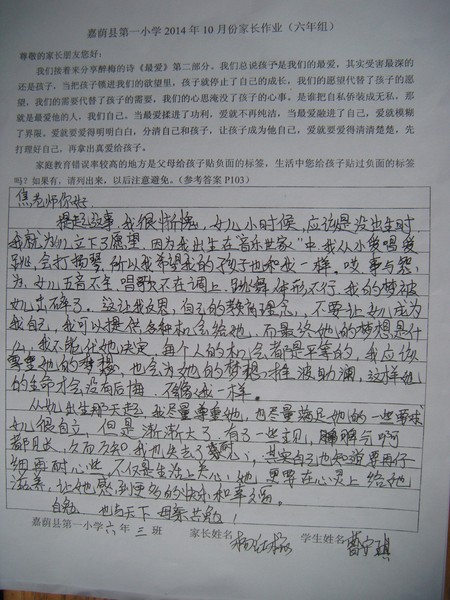 嘉荫县第一小学2014年10月份家长作业（六年组）
尊敬的家长朋友您好：
我们接着来分享醉梅的诗《最爱》第二部分。我们总说孩子是我们的最爱，其实受害最深的
还是孩子，当把孩子锁进我们的欲望里，孩子就停止了自己的成长，我们的愿望代替了孩子的愿
望，我们的需要代替了孩子的需要，我们的心思淹没了孩子的心事。是谁把自私侨装成无私，那
就是最爱他人，我们自己，当最爱揉进了功利，爱就不再纯洁，当最爱融进了自己，爱就模糊
了界限，爱就要爱得明明白白，分清自己和孩子，让孩子成为他自己，爱就要爱得清清楚楚，先
打理好自己，再拿出真爱给孩子。
家庭教育错误率较高的地方是父母给孩子贴负面的标签，生活中您给孩子贴过负面的标签
吗？如果有，请列出来，以后注意避免。（参考答案P103）
焦老师你好
提起这事，我很惭愧，女儿小时候，应该是没出生时
我就为她立下了愿望，因为我出生在“音乐世家”中我从小爱唱爱
跳，会打扬琴，所以我希望我的孩子也和我一样。哎事与愿
为，女儿五音不全，唱歌不在调上，跳舞体形不行，我的梦被
女儿击碎了。这让我反思，自己的教育理念，不要让女儿成为
我自己，我可以提供各种机会给她，而最终她的梦想是什
么，我不能代她决定，每个人的机会都是平等的，我应该
尊重她的梦想，也会为她的梦想推波助澜，这样她
的生命才会没有后悔，不像我一样。
从她出生那天起，我尽量尊重她，也尽量满足她的一些要求
女儿很自立，但是渐渐大了，有了一些主见，脾气
都见长，久而久知我也失去了耐心，其实自己也知道要再仔
细再耐心些，不仅是生活上关心她，更要在心灵上给她
滋养，让她感到更多的快乐和幸福。
自勉 也与天下母亲共勉！
嘉荫县第一小学六年三班 家长姓名 学生姓名